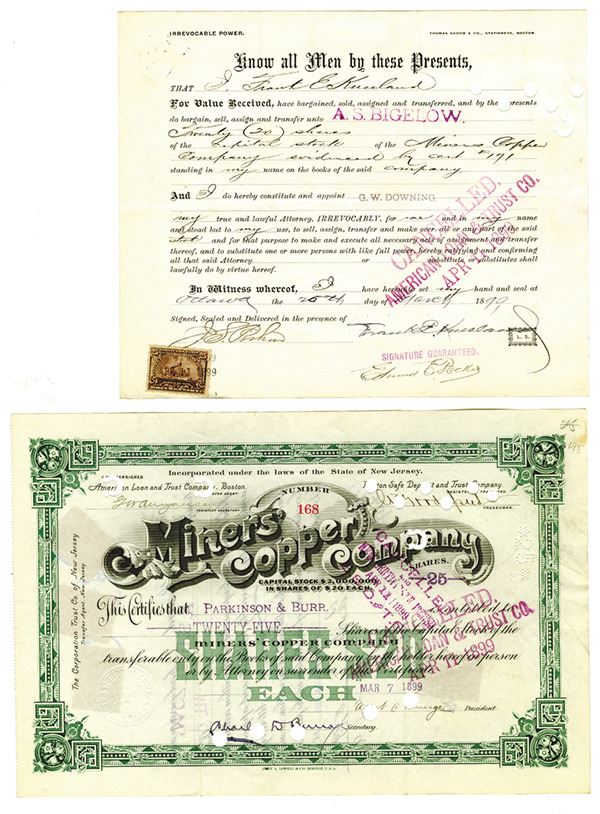 IRREVOCABLE POWER.
THOMAS GROOM & CO., STATIONERS, BOSTON.
Know all Men by these Presents,
THAT I, Frank E
For Value Received, have bargained, sold, assigned and transferred, and by these presents
do bargain, sell, assign and transfer unto A. S. BIGELOW.
Twenty (20) shares
of the capital stock of the Miners Copper
Company evidenced by cert #171
standing in my name on the books of the said company
And I do hereby constitute and appoint G. W. DOWNING,
my true and lawful Attorney, IRREVOCABLY, for me and in my name
and stead but to my use, to sell, assign, transfer and make over all or any part of the said
and for that purpose to make and execute all necessary acts of assignment and transfer
thereof, and to substitute one or more persons with like full power, hereby ratifying and confirming
all that said Attorney or substitute or substitutes shall
lawfully do by virtue hereof.
CANCELLED.
AMERICAN LOAN & TRUST CO.
APR 1899
In Witness whereof, I have hereunto set my hand and seal at
Ottawa the 25th day of March 1899
Signed, Sealed and Delivered in the presence of
Frank E
L. S.
SIGNATURE GUARANTEED,
1899
295
195
Incorporated under the laws of the State of New Jersey.
COUNTERSIGNED
American Loan and Trust Company, Boston.
Boston Safe Deposit and Trust Company
TRANSFER AGENT
REGISTRAR OF TRANSFERS
NUMBER
168
TREASURER.
Miners' Copper Company
SHARES.
CAPITAL STOCK $2,000,000.
IN SHARES OF $20 EACH.
25
This Certifies that PARKINSON & BURR. is entitled to
TWENTY-FIVE Shares of the Capital Stock of the
MINERS' COPPER COMPANY
transferable only on the Books of said Company by the holder hereof in person
or by Attorney on surrender of this Certificate
EACH
MAR 7 1899
President.
Secretary.
CANCELLED.
LOAN & TRUST CO.
APR 11 1899
The Corporation Trust Co. of New Jersey
Transfer Agent New Jersey
JOHN A. LOWELL & CO. BOSTON, U.S.A.